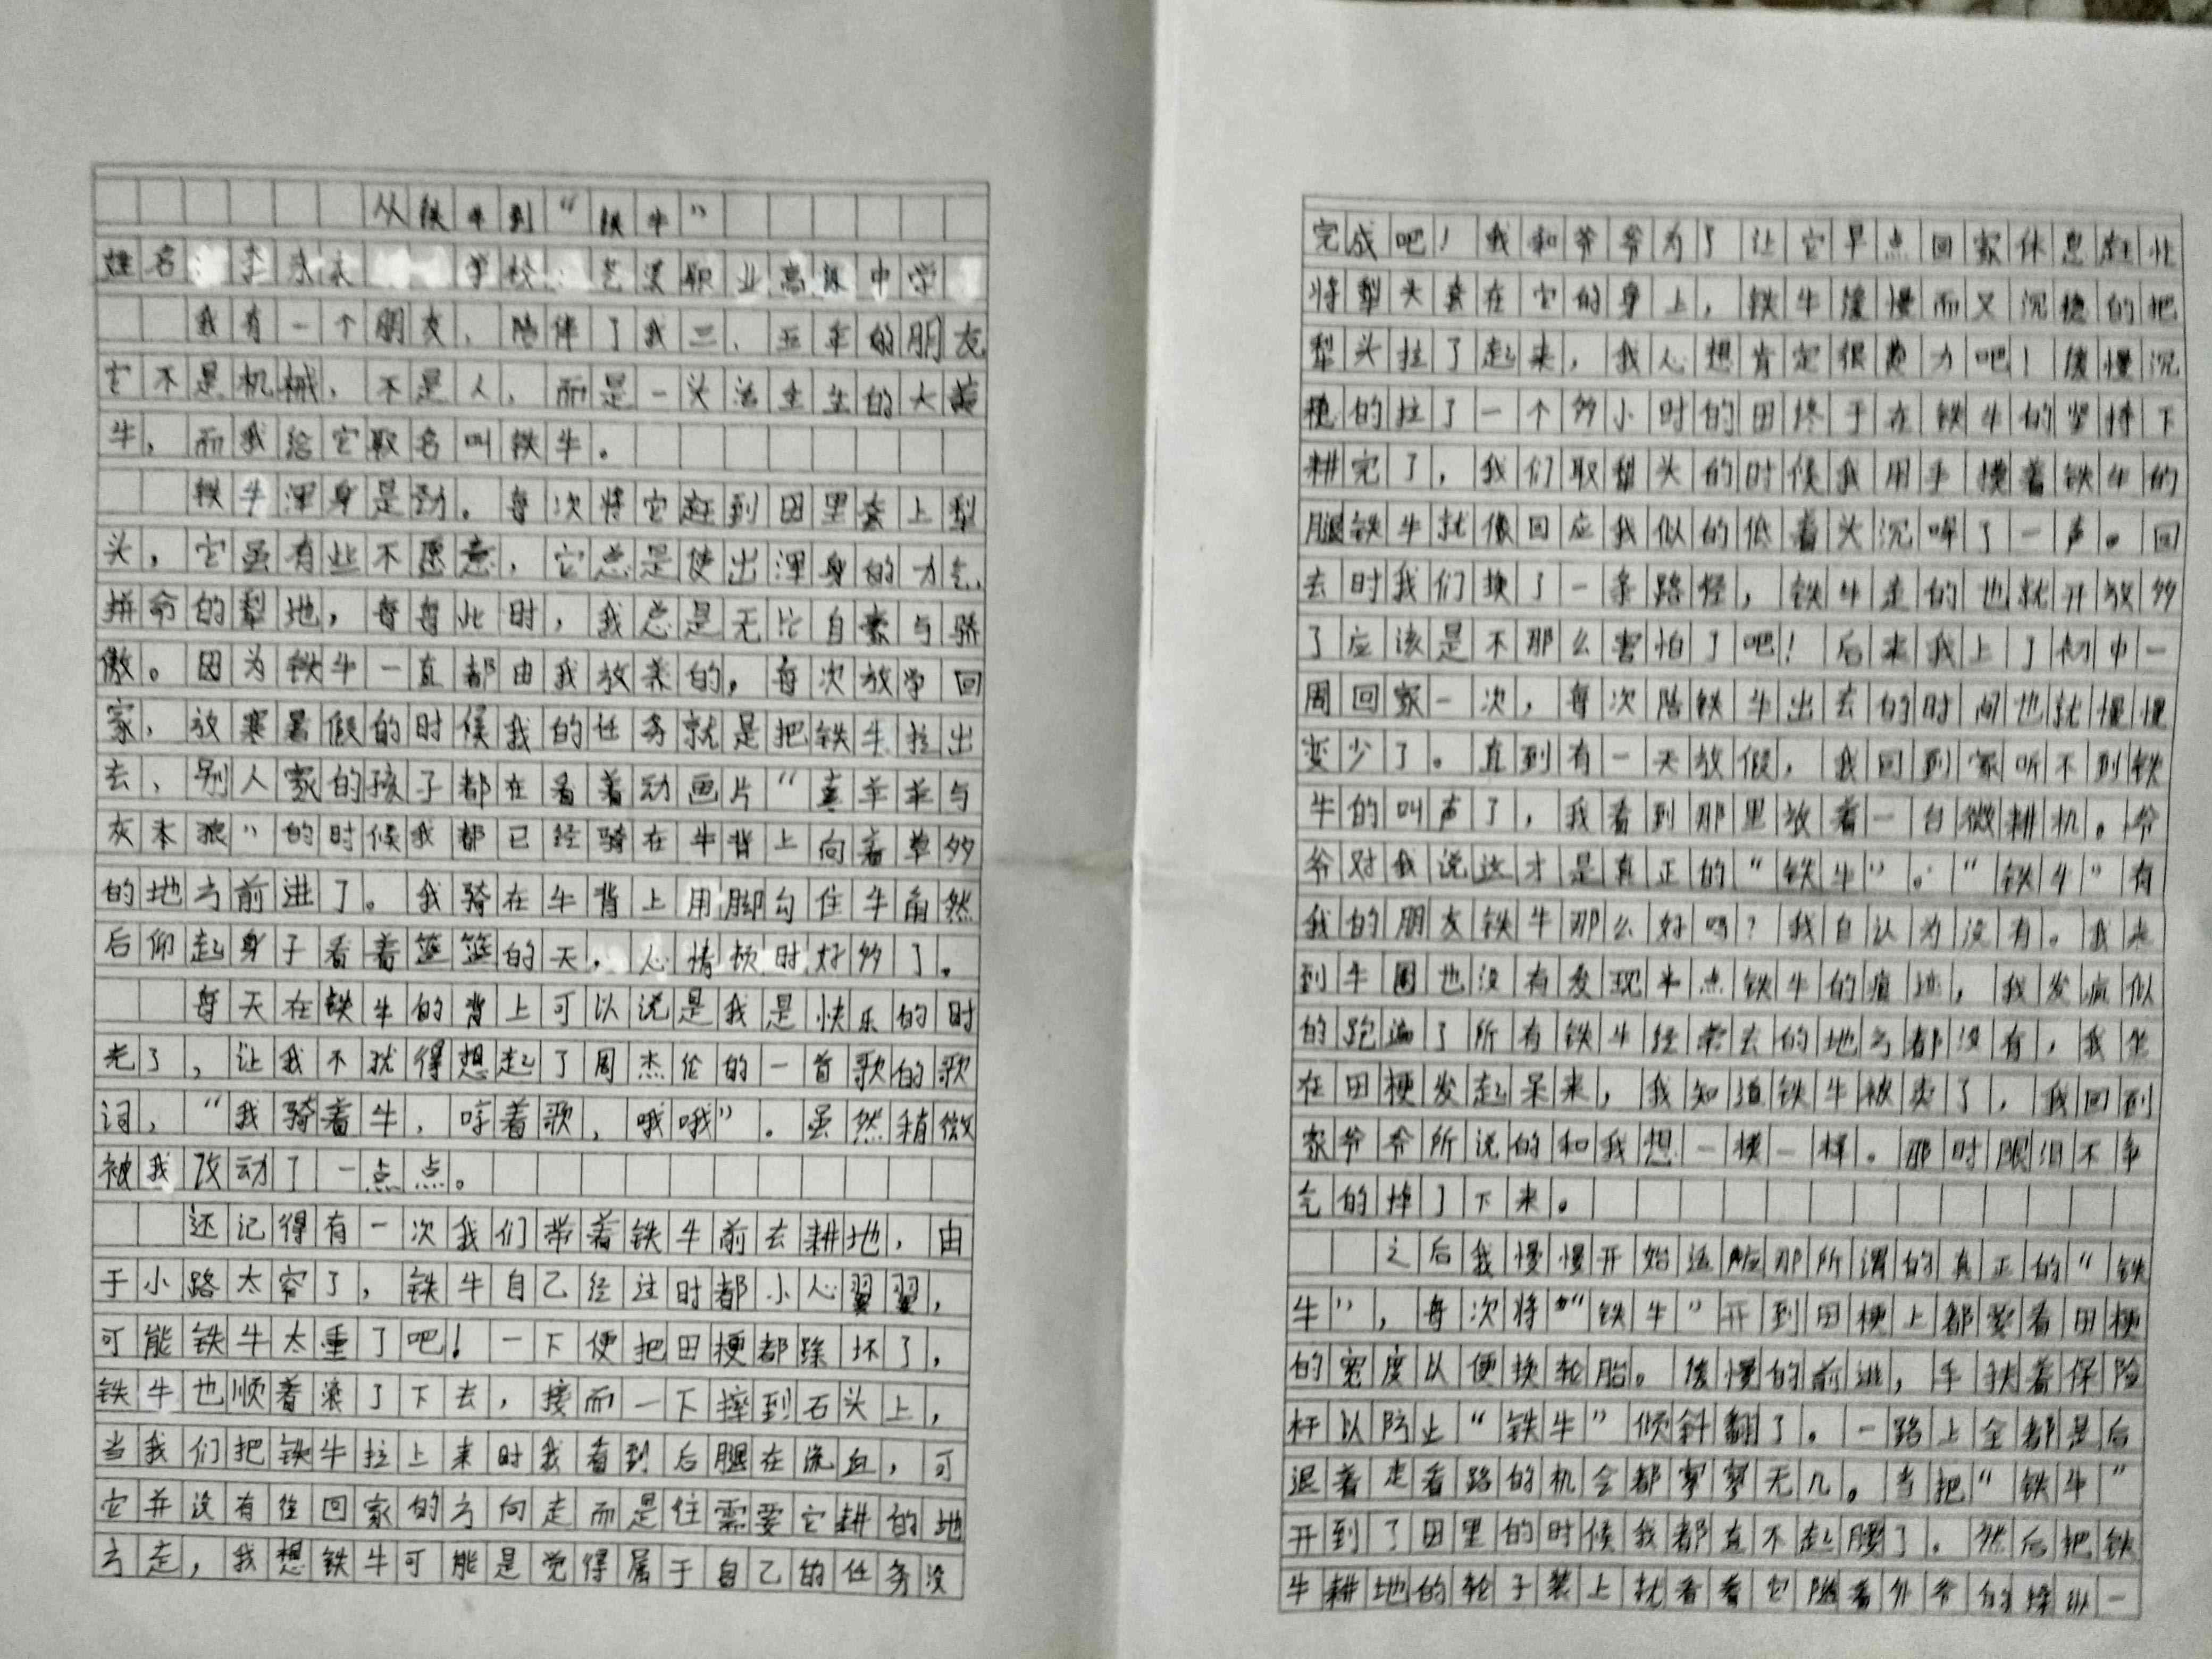 从铁牛到“铁牛”
姓名 李 学校 艺术职业高级中学
我有一个朋友、陪伴了我三、五年的朋友
它不是机械、不是人，而是一头活生生的大黄
牛，而我给它取名叫铁牛。
铁牛浑身是劲。每次将它赶到田里套上犁
头，它虽有些不愿意，它总是使出浑身的力气、
拼命的犁地，每每此时，我总是无比自豪与骄
傲。因为铁牛一直都由我放养的，每次放学回
家、放寒暑假的时候我的任务就是把铁牛拉出
去、别人家的孩子都在看着动画片“喜羊羊与
灰太狼”的时候我都已经骑在牛背上向着草多
的地方前进了。我骑在牛背上用脚勾住牛角然
后仰起身子看着篮篮的天，心情顿时好多了。
每天在铁牛的背上可以说是我是快乐的时
光了，让我不犹得想起了周杰伦的一首歌的歌
词，“我骑着牛，哼着歌，哦哦”。虽然稍微
被我改动了一点点。
还记得有一次我们带着铁牛前去耕地，由
于小路太窄了，铁牛自己经过时都小心翼翼，
可能铁牛太重了吧！一下便把田梗都踩坏了，
铁牛也顺着滚了下去，接而一下摔到石头上，
当我们把铁牛拉上来时我看到后腿在流血，可
它并没有往回家的方向走而是往需要它耕的地
方走，我想铁牛可能是觉得属于自己的任务没
完成吧！我和爷爷为了让它早点回家休息赶忙
将犁头套在它的身上，铁牛缓慢而又沉稳的把
犁头拉了起来，我心想肯定很费力吧！缓慢沉
稳的拉了一个多小时的田终于在铁牛的坚持下
耕完了，我们取犁头的时候我用手摸着铁牛的
腿铁牛就像回应我似的低着头沉哞了一声。回
去时我们换了一条路径，铁牛走的也就开放多
了应该是不那么害怕了吧！后来我上了初中一
周回家一次，每次陪铁牛出去的时间也就慢慢
变少了。直到有一天放假，我回到家听不到铁
牛的叫声了，我看到那里放着一台微耕机。爷
爷对我说这才是真正的“铁牛”。“铁牛”有
我的朋友铁牛那么好吗？我自认为没有。我来
到牛圈也没有发现半点铁牛的痕迹，我发疯似
的跑遍了所有铁牛经常去的地方都没有，我坐
在田梗发起呆来，我知道铁牛被卖了，我回到
家爷爷所说的和我想一模一样。那时眼泪不争
气的掉了下来。
之后我慢慢开始适应那所谓的真正的“铁
牛”，每次将“铁牛”开到田梗上都要看田梗
的宽度以便换轮胎。缓慢的前进，手扶着保险
杆以防止“铁牛”倾斜翻了。一路上全都是后
退着走看路的机会都寥寥无几。当把“铁牛”
开到了田里的时候我都直不起腰了。然后把铁
牛耕地的轮子装上就看着它随着外爷的操纵一